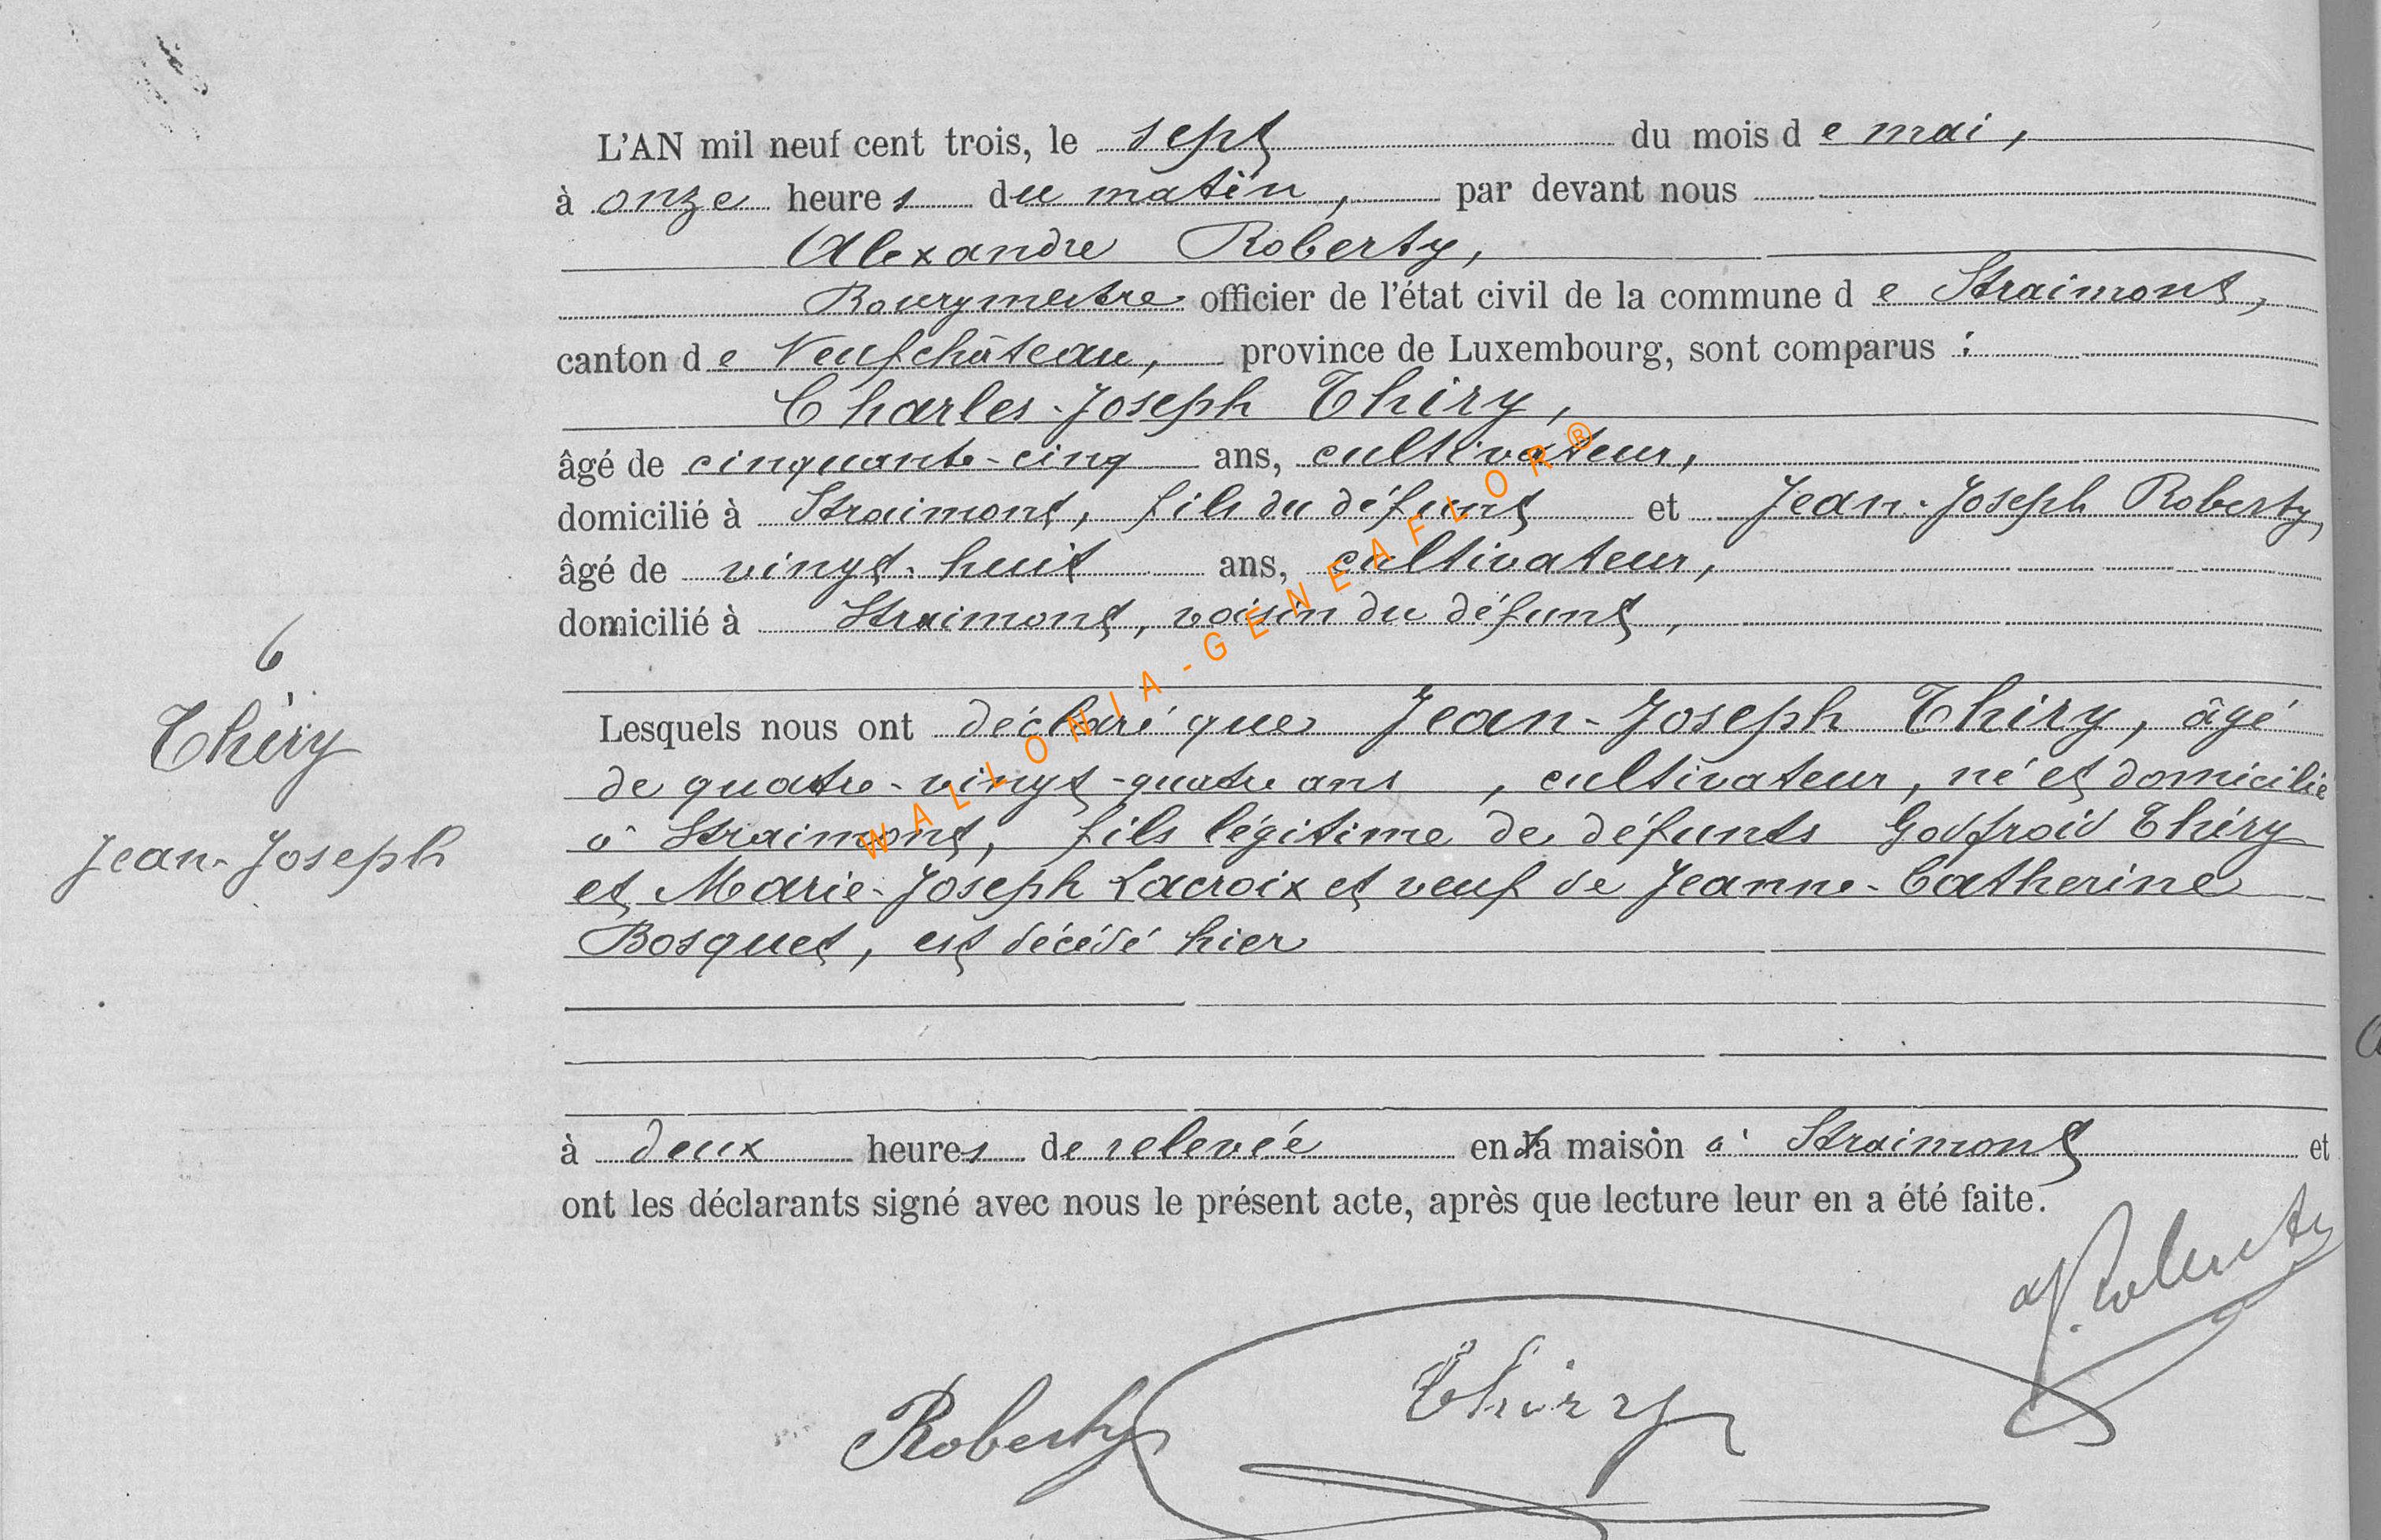 L'AN mil neuf cent trois, le sept du mois de mai,
à onze heures du matin, par devant nous
Alexandre Roberty,
Bourgmestre officier de l'état civil de la commune de Straimont,
canton de Neufchâteau, province de Luxembourg, sont comparus :
Charles-Joseph Thiry,
âgé de cinquante-cinq ans, cultivateur,
domicilié à Straimont, fils du défunt et Jean-Joseph Roberty,
âgé de vingt-huit ans, cultivateur,
domicilié à Straimont, voisin du défunt,
6
Thiry
Jean-Joseph
Lesquels nous ont déclaré que Jean-Joseph Thiry, âgé
de quatre-vingt-quatre ans, cultivateur, né et domicilié
à Straimont, fils légitime de défunts Godfroid Thiry
et Marie-Joseph Lacroix et veuf de Jeanne-Catherine
Bosquet, est décédé hier
à deux heures de relevée en sa maison à Straimont et
ont les déclarants signé avec nous le présent acte, après que lecture leur en a été faite.
Roberty
Thiry
A. Roberty
WALLONIA-GENEAFLOR®